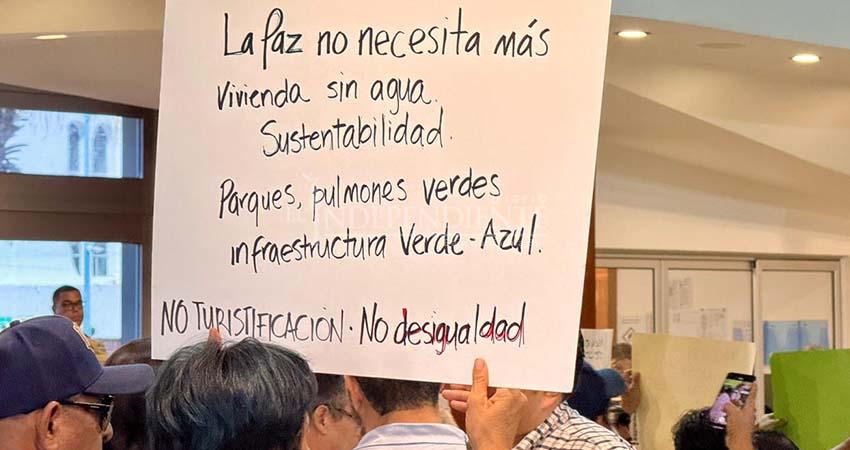 La Paz no necesita más
Vivienda sin agua.
Sustentabilidad.
Parques, pulmones verdes
infraestructura Verde-Azul.
NO TURISTIFICACIÓN · No desigualdad
EL INDEPENDIENTE